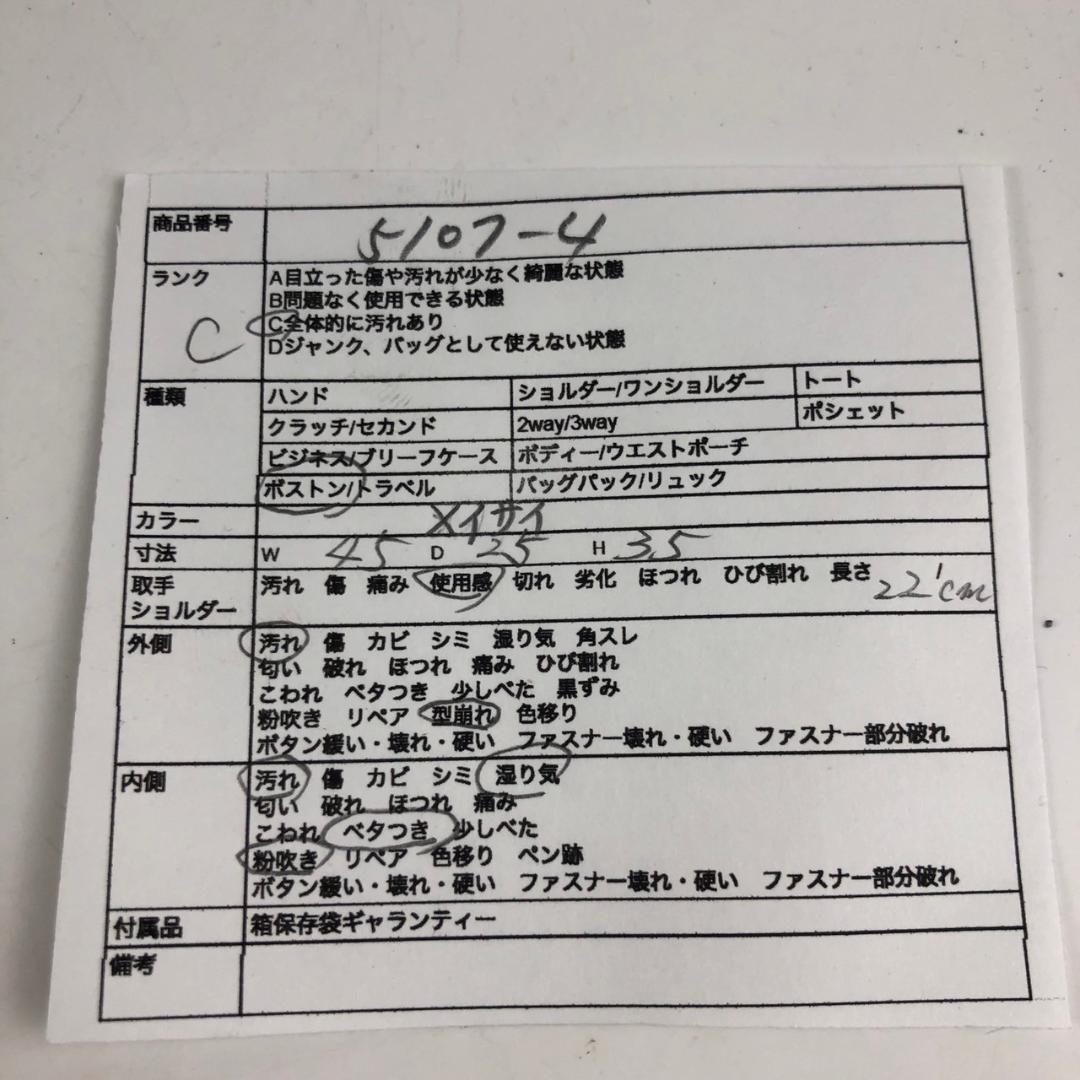 商品番号 5107-4
ランク C
A目立った傷や汚れが少なく綺麗な状態
B問題なく使用できる状態
C全体的に汚れあり
Dジャンク、バッグとして使えない状態
種類
ハンド ショルダー/ワンショルダー トート
クラッチ/セカンド 2way/3way ポシェット
ビジネス/ブリーフケース ボディー/ウエストポーチ
ボストン/トラベル バッグパック/リュック
カラー メイサイ
寸法 W 45 D 25 H 35
取手 汚れ 傷 痛み 使用感 切れ 劣化 ほつれ ひび割れ 長さ 22cm
ショルダー
外側 汚れ 傷 カビ シミ 湿り気 角スレ
匂い 破れ ほつれ 痛み ひび割れ
こわれ ベタつき 少しべた 黒ずみ
粉吹き リペア 型崩れ 色移り
ボタン緩い・壊れ・硬い ファスナー壊れ・硬い ファスナー部分破れ
内側 汚れ 傷 カビ シミ 湿り気
匂い 破れ ほつれ 痛み
こわれ ベタつき 少しべた
粉吹き リペア 色移り ペン跡
ボタン緩い・壊れ・硬い ファスナー壊れ・硬い ファスナー部分破れ
付属品 箱保存袋ギャランティー
備考